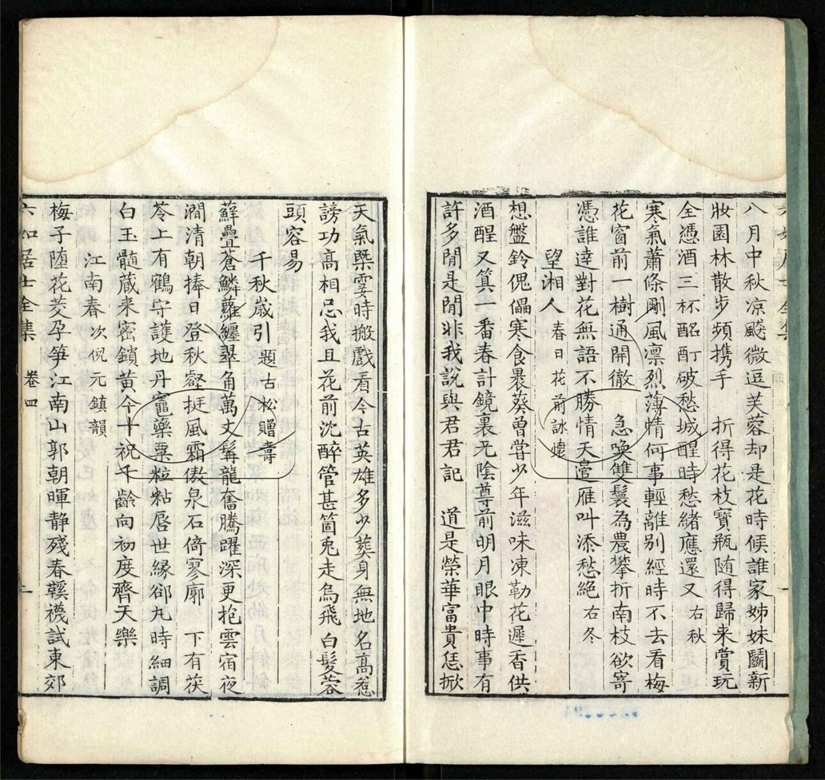 八月中秋凉飈微逗芙蓉却是花時候誰家姊妹鬬新
妝園林散步頻携手　折得花枝寶瓶随得歸来賞玩
全憑酒三杯酩酊破愁城醒時愁緒應還又 右秋
寒氣蕭條剛風凛烈薄情何事輕離別經時不去看梅
花窗前一樹通開徹　急喚雙鬟為農攀折南枝欲寄
憑誰達對花無語不勝情天邉雁叫添愁絶 右冬
望湘人 春日花前詠懐
想盤鈴傀儡寒食裹蒸曽嘗少年滋味凍勒花遲香供
酒醒又算一番春計鏡裏光陰尊前明月眼中時事有
許多閒是閒非我說與君君記　道是榮華富貴恁掀
天氣槩霎時搬戲看今古英雄多少葬身無地名高惹
謗功高相忌我且花前沈醉管甚箇兎走烏飛白髪蓉
頭容易
千秋嵗引 題古松贈壽
蘚疊蒼鱗蘿纏翠角萬丈髯龍奮騰躍深更抱雲宿夜
澗清朝捧日登秋壑挺風霜傲泉石倚寥廓　下有茯
苓上有鶴守護地丹竈藥粟粒粘唇世縁郤九時細調
白玉髓蔵来密鎖黄今十祝千齡向初度齊天樂
江南春 次倪元鎮韻
梅子随花茭孕笋江南山郭朝暉静殘春韈襪試東郊
六如居士全集　卷四